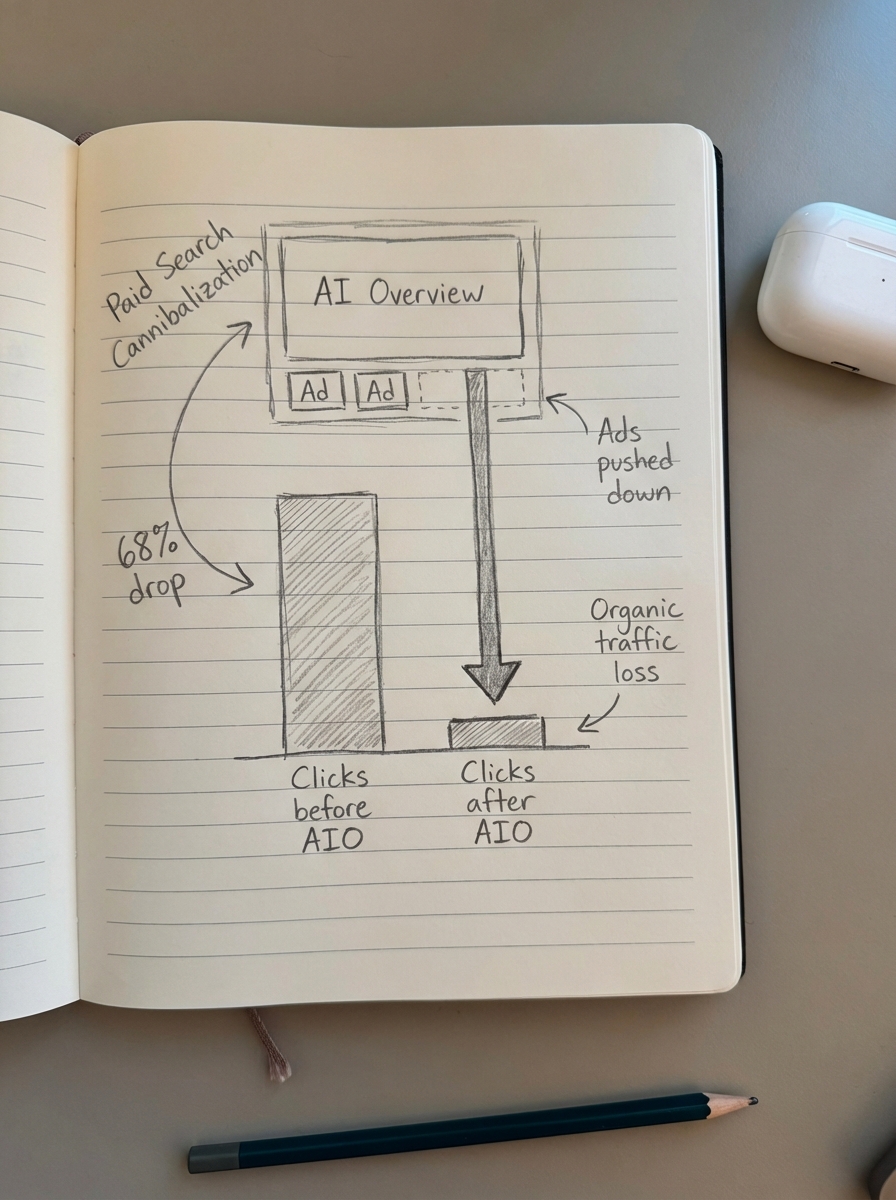 Paid Search
Cannibalization
AI Overview
Ad
Ad
Ads
pushed
down
68%
drop
Organic
traffic
loss
Clicks
before
AIO
Clicks
after
AIO